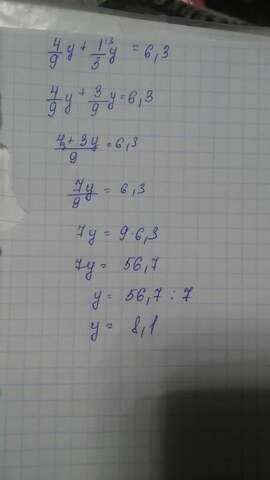 4/9 y + 1^3/3 y = 6,3
4/9 y + 3/9 y = 6,3
4 + 3y/9 = 6,3
7y/9 = 6,3
7y = 9·6,3
7y = 56,7
y = 56,7 : 7
y = 8,1